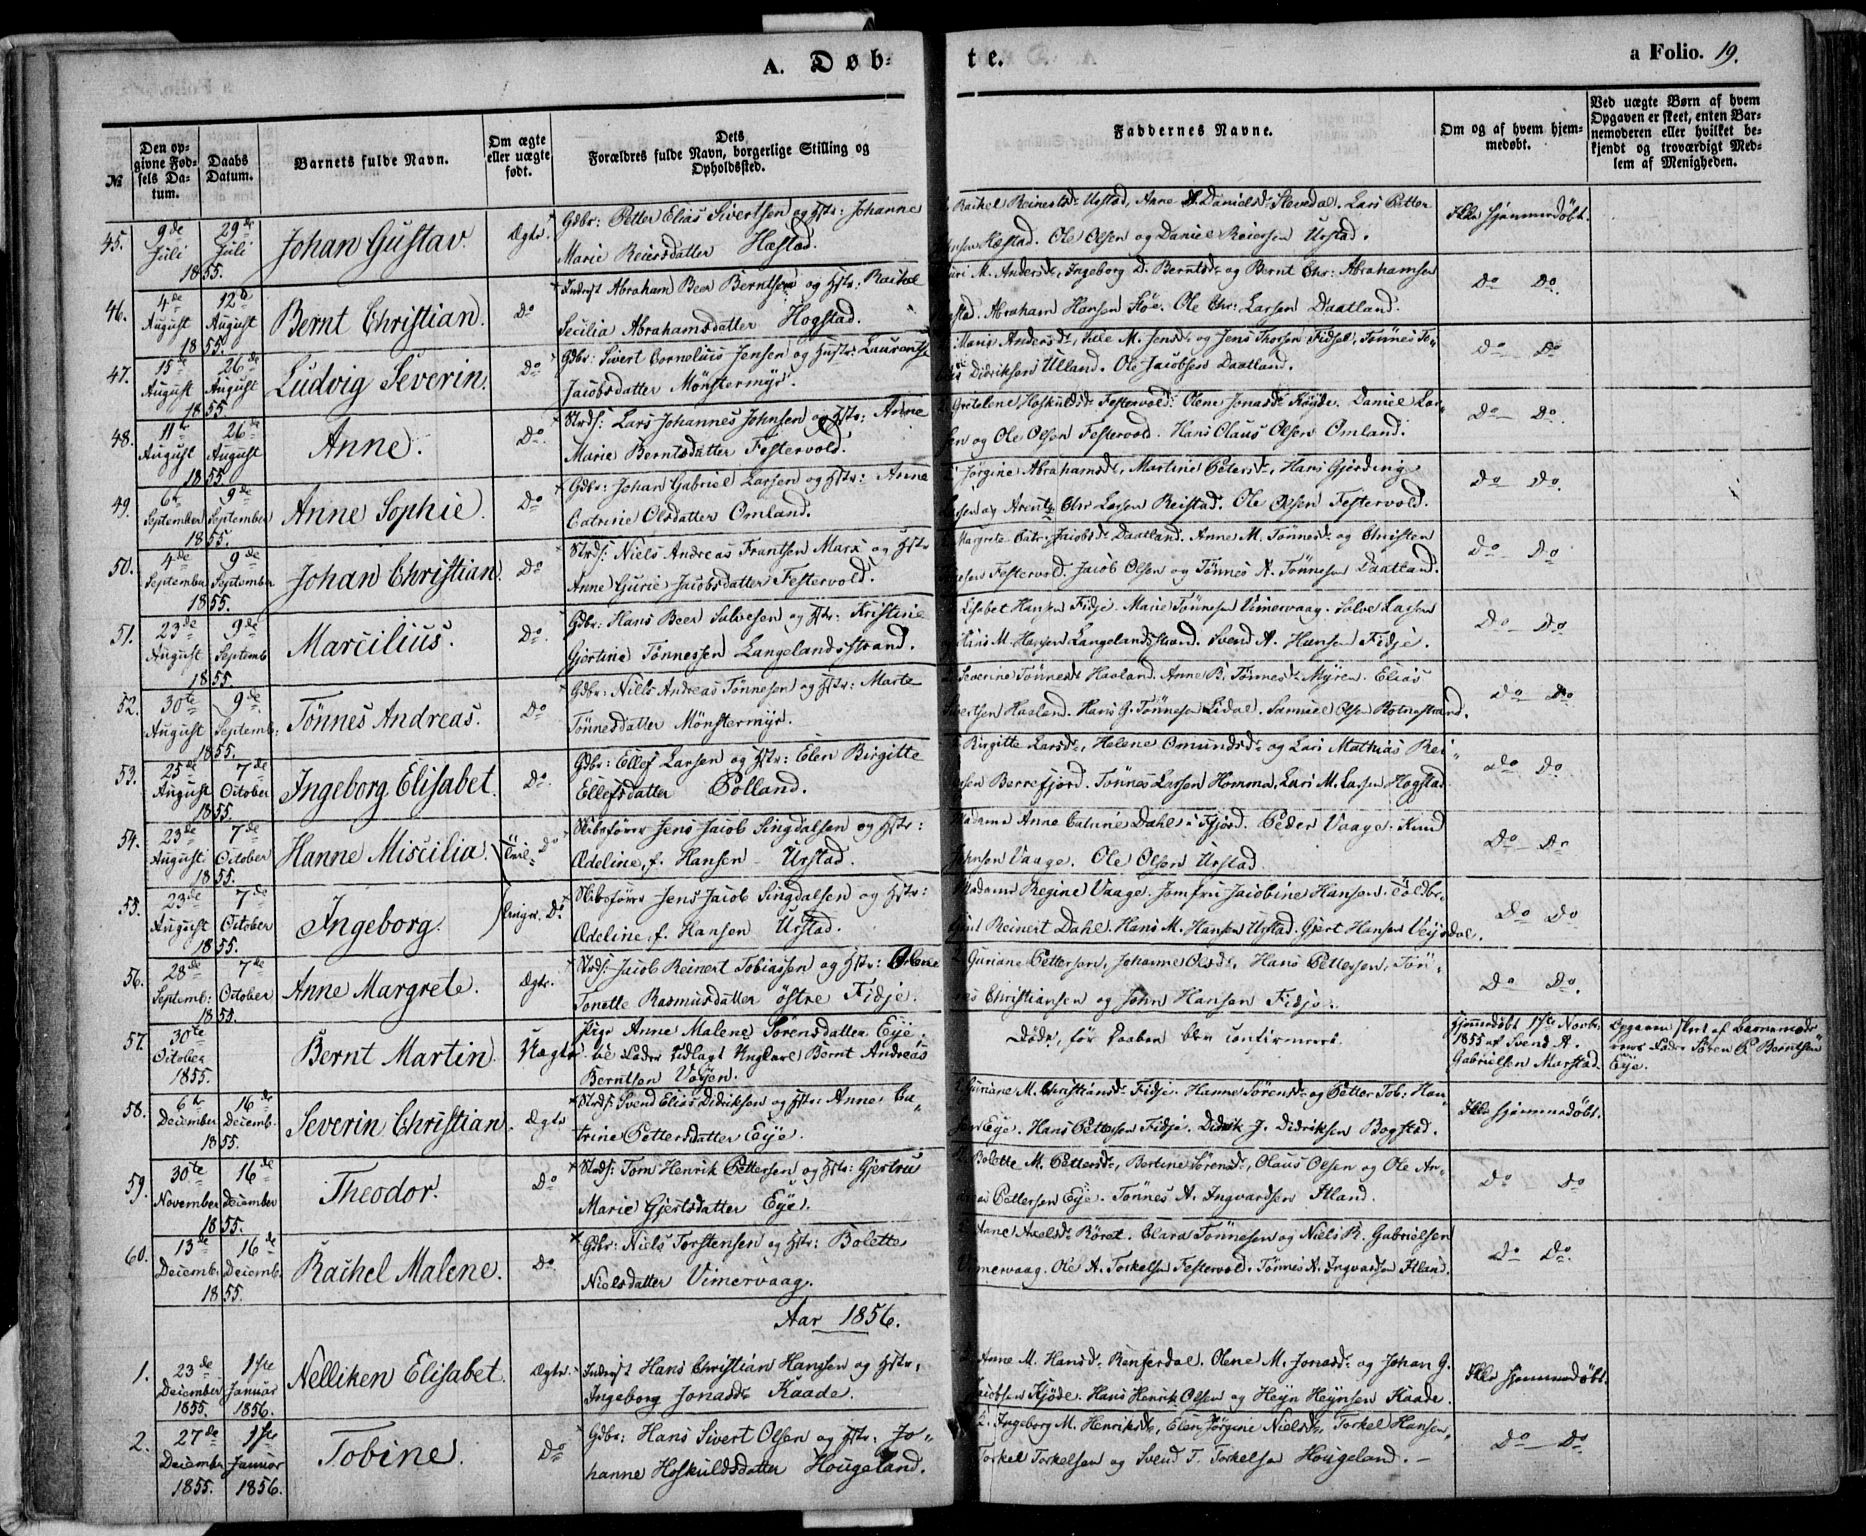 A. Døb-
te.
a Folio. 19.
№
Den op-
givne Fød-
sels Da-
tum.
Daabs
Datum.
Barnets fulde Navn.
Om ægte
eller uægte
født.
Dets
Forældres fulde Navn, borgerlige Stilling og
Opholdssted.
Faddernes Navne.
Om og af hvem hjem-
medøbt.
Ved uægte Børn af hvem
Opgaven er skeet, enten Bar-
nemoderen eller hvilket be-
kjendt og troværdigt Med-
lem af Menigheden.
45. 9de Juli 29de Juli 1855. Johan Gustav. Ægte. Gdbr: Petter Elias Sivertsen og Hstr: Johanne
Marie Reiersdatter Hæstad.
Rachel Reinertsd. Urstad, Anne Danielsd. Stevedal. Lars Petter
Hæstad. Ole Olsen og Daniel Reiersen Urstad. Ikke hjemmedøbt.
46. 4de August 12te August 1855. Bernt Christian. Do Inderst Abraham Beer Berntsen og Hstr: Rachel
Secilia Abrahamsdatter Hogstad.
M. Andersd., Ingeborg D. Berntsd. og Bernt Chr: Abrahamsen
Abraham Hansen Støe. Ole Chr: Larsen Daatland. Do Do.
47. 15de August 26de August 1855 Ludvig Severin. Do Gdbr: Sivert Cornelius Jensen og Hustr: Laurentse
Jacobsdatter Mønstermyr.
Marie Andersd., M. Jensd. og Jens Thorsen Fidsel, Tønnes To-
Didriksen Ulland. Ole Jacobsen Daatland. Do Do
48. 11te August 26de August 1855 Anne. Do. Strds: Lars Johannes Johnsen og Hstr: Anne
Marie Berntsdatter Festervold.
Gretelene Hoskuldsd. Festervold. Olene Jonasd. Daniel Lar-
sen og Ole Olsen Festervold. Hans Claus Olsen Omland. Do Do.
49. 6te September 9de September 1855. Anne Sophie. Do Gdbr: Johan Gabriel Larsen og Hstr: Anne
Catrine Olsdatter Omland.
Jørgine Abrahamsd., Martine Petersd., Hans Gjerding
Larsen og Arent Chr Larsen Reistad. Ole Olsen Festervold. Do Do.
50. 4de September 9de September 1855. Johan Christian. Do Strds: Niels Andreas Frantsen Marx og Hstr
Anne Gurie Jacobsdatter Festervold.
Margrete Catr. Jacobsd. Daatland. Anne M. Tønnesd. og Christen
Festervold. Jacob Olsen og Tønnes A. Tønnesen Daatland. Do Do.
51. 23de August 9de Septemb 1855. Marcilius. Do. Gdbr: Hans Beer Salvesen og Hstr: Kristine
Gjertine Tønnessen Langelandsstrand.
Lisabet Hansen Fidje. Marie Tønnesen Vimervaag. Salve Larsen
M. Hansen Langelandsstrand. Svend A. Hansen Fidje. Do Do.
52. 30te August 9de Septemb: 1855. Tønnes Andreas. Do. Gdbr: Niels Andreas Tønnesen og Hstr: Marte
Tønnesdatter Mønstermyr.
Severine Tønnesd. Haaland. Anne B. Tønnesd. Myren. Elias
Sivertsen Haaland. Hans G. Tønnesen Lidal. Samuel Olsen Do Do.
53. 25de August 7de October 1855. Ingeborg Elisabet. Do. Gdbr: Ellef Larsen og Hstr: Elen Birgitte
Ellefsdatter Polland.
Birgitte Larsd., Helene Omundsd. og Lars Mathias Rei-
Berrefjord. Tønnes Larsen Homme, Lars M. Larsen Hogstad Do Do.
54. 23de August 7de October 1855. Hanne Miscilia. Tvil- Do Skibsfører Jens Jacob Singdalsen og Hstr:
Adeline, f. Hansen Urstad.
Madame Anne Catrine Dahl i Fjord. Peder Vaage. Knud
Johnsen Vaage. Ole Olsen Urstad. Do Do
55. 23de August 7de October 1855. Ingeborg. linger. Do. Skibsfører Jens Jacob Singdalsen og Hstr:
Adeline, f. Hansen Urstad.
Madame Regine Vaage. Jomfru Jacobine Hansen. Toldbe-
tjent Reinert Dahl. Hans M. Hansen Urstad. Gjert Hansen Do Do
56. 28de Septemb: 7de October 1855. Anne Margrete. Ægte. Strds: Jacob Reinert Tobiassen og Hstr: Olene
Tonette Rasmusdatter østre Fidje.
Guriane Pettersen, Johanne Olsd., Hans Pettersen, Tøn-
nes Christiansen og John Hansen Fidje. Do Do.
57. 30te October 1855. Bernt Martin. Uægte Pige Anne Malene Sørensdatter Eye,
til Fader udlagt Ungkarl Bernt Andreas
Berntsen
Døde, før Daaben blev confirmeret.
Hjemmedøbt 17de Novbr.
1855 af Svend A.
Gabrielsen Marstad.
Opgaven skeet af Barnemode-
rens Fader Søren P. Berntsen
Eye.
58. 6te December 16de Decemb. 1855. Severin Christian. Ægte Strds: Svend Elias Didriksen og Hstr: Anne Ca-
trine Pettersdatter Eye.
Guriane M. Christiansd. Fidje. Hanne Sørensd. og Petter Tob: Han-
sen Eye. Hans Pettersen Fidje. Didrik J. Didriksen Bogstad. Ikke hjemmedøbt.
59. 30te November 16de December 1855. Theodor. Do. Strds: Tom Henrik Pettersen og Hstr: Gjertru
Marie Gjertsdatter Eye.
Bolette M. Pettersd., Bertine Sørensd., Olaus Olsen og Ole An-
dreas Pettersen Eye. Tønnes A. Ingvardsen Itland. Do Do
60. 13de Decemb. 16de Decemb. 1855. Rachel Malene. Do. Gdbr: Niels Torstensen og Hstr: Bolette
Nielsdatter Vimervaag.
Ane Axelsd. Røret. Clara Tønnesen og Niels R. Gabrielsen
Vimervaag. Ole A. Torkelsen Festervold. Tønnes A. Ingvardsen Itland. Do Do.
Aar 1856.
1. 23de December 1855. 1ste Januar 1856. Nelliken Elisabet. Ægte. Inderst Hans Christian Hansen og Hstr:
Ingeborg Jonasd. Kaade.
Anne M. Hansd. Olene M. Jonasd. og Johan G.
Jacobsen Kjøde. Hans Henrik Olsen og Heyn Heynsen Kaade. Ikke hjemmedøbt.
2. 27de December 1855. 1ste Januar 1856. Tobine. Do Gdbr: Hans Sivert Olsen og Hstr: Jo-
hanne Hoskuldsdatter Hougeland.
Ingeborg M. Henriksd., Elen Jørgine Nielsd. Torkel Hansen,
Torkel Torkelsen og Svend T. Torkelsen Hougeland. Do Do.